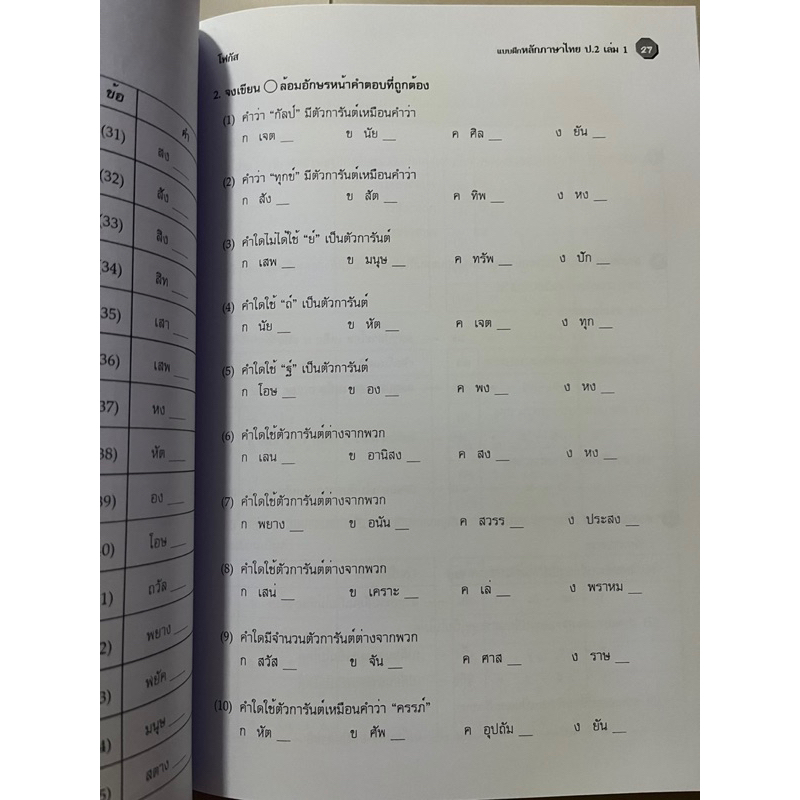 ข้อ
คำ
(31) สง __
(32) สัง __
(33) สิง __
(34) สิท __
35) เสา __
36) เสพ __
37) หง __
38) หัต __
39) อง __
40) โอษ __
1) ถวัล __
2) พยาง __
3) พยัค __
4) มนุษ __
5) สตาง __
โฟกัส
แบบฝึกหลักภาษาไทย ป.2 เล่ม 1 27
2. จงเขียน ◯ ล้อมอักษรหน้าคำตอบที่ถูกต้อง
(1) คำว่า “กัลป์” มีตัวการันต์เหมือนคำว่า
ก เจต __ ข นัย __ ค ศิล __ ง ยัน __
(2) คำว่า “ทุกข์” มีตัวการันต์เหมือนคำว่า
ก สัง __ ข สัต __ ค ทิพ __ ง หง __
(3) คำใดไม่ได้ใช้ “ย์” เป็นตัวการันต์
ก เสพ __ ข มนุษ __ ค ทรัพ __ ง ปัก __
(4) คำใดใช้ “ถ์” เป็นตัวการันต์
ก นัย __ ข หัต __ ค เจต __ ง ทุก __
(5) คำใดใช้ “ฐ์” เป็นตัวการันต์
ก โอษ __ ข อง __ ค พง __ ง หง __
(6) คำใดใช้ตัวการันต์ต่างจากพวก
ก เลน __ ข อานิสง __ ค สง __ ง หง __
(7) คำใดใช้ตัวการันต์ต่างจากพวก
ก พยาง __ ข อนัน __ ค สวรร __ ง ประสง __
(8) คำใดใช้ตัวการันต์ต่างจากพวก
ก เสน่ __ ข เคราะ __ ค เล่ __ ง พราหม __
(9) คำใดมีจำนวนตัวการันต์ต่างจากพวก
ก สวัส __ ข จัน __ ค ศาส __ ง ราษ __
(10) คำใดใช้ตัวการันต์เหมือนคำว่า “ครรภ์”
ก หัต __ ข ศัพ __ ค อุปถัม __ ง ยัน __